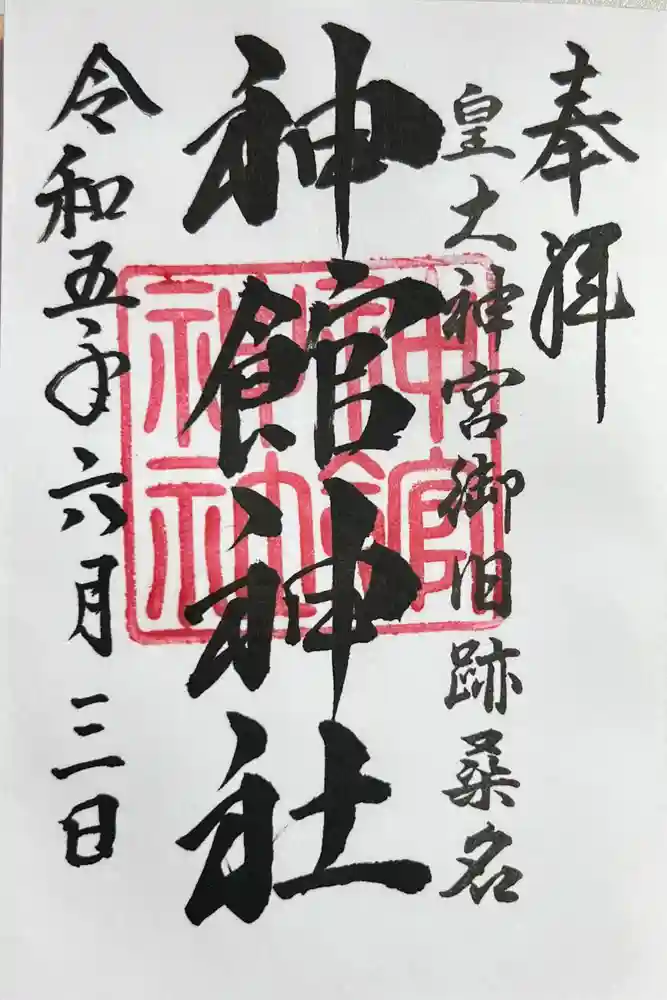 奉拝
皇大神宮御旧跡桑名
神館神社
神館
神社
令和五年六月三日